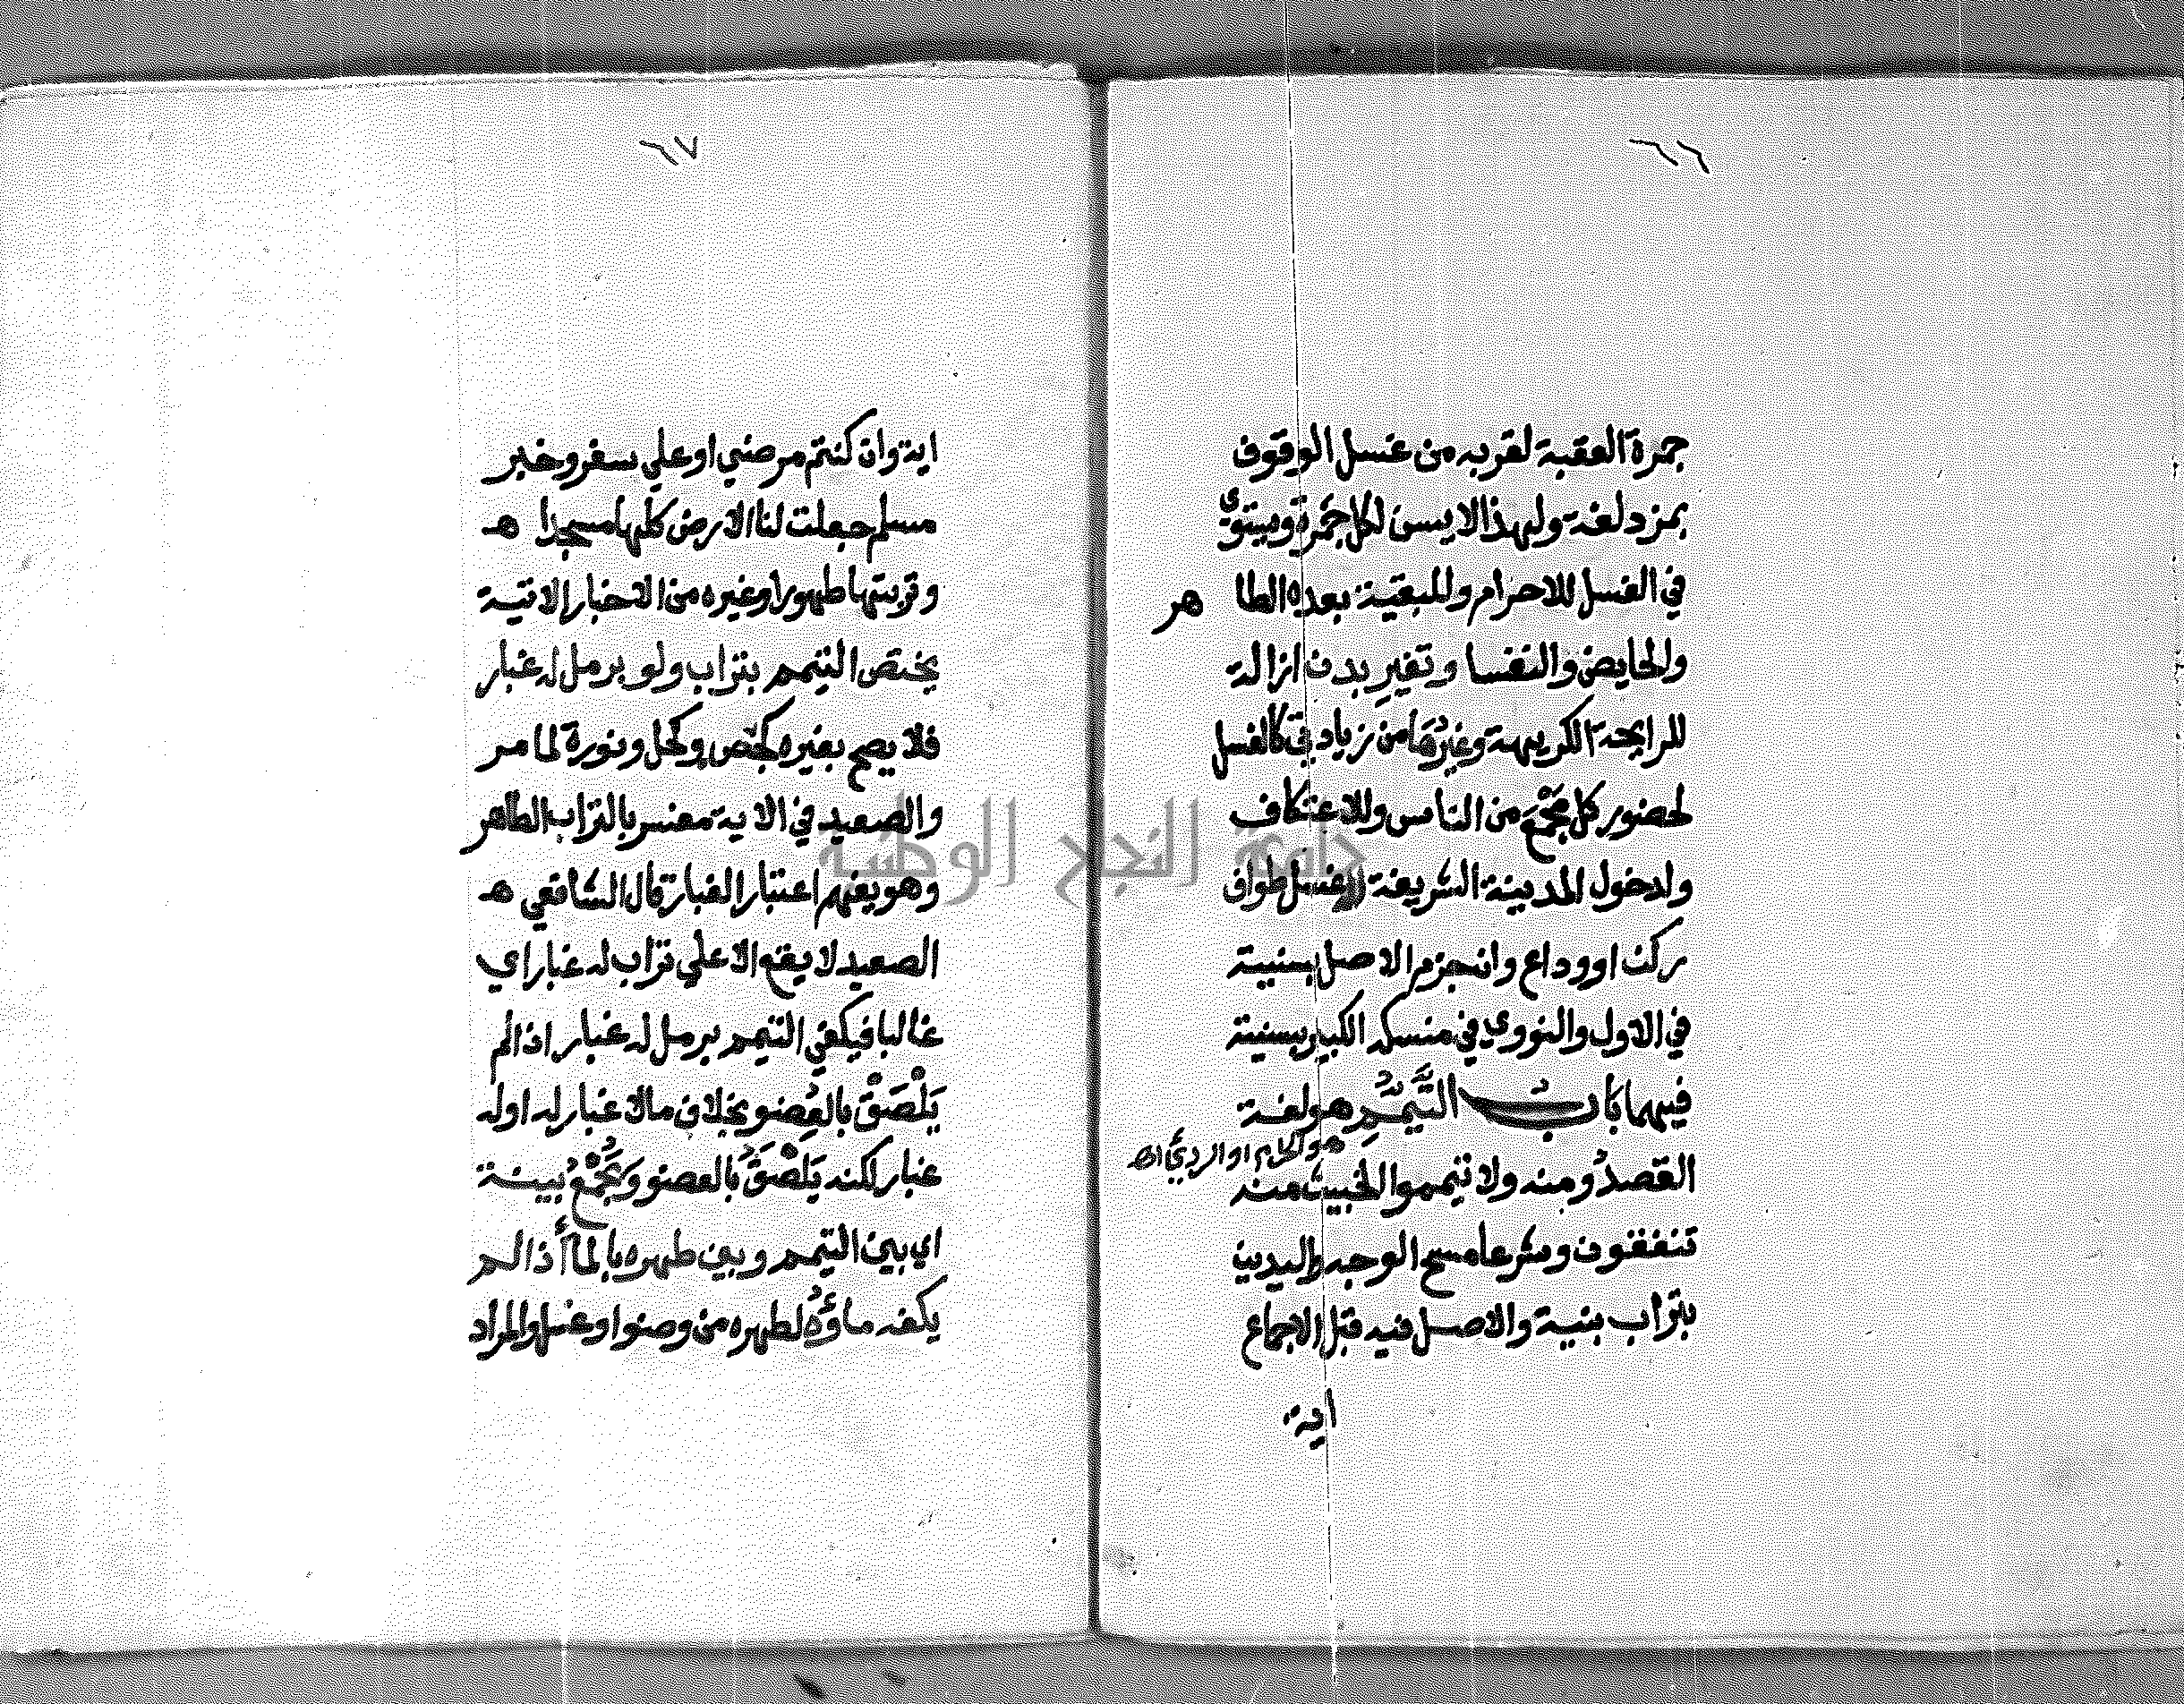 ٦٦
جمرة العقبة لقربه من غسل الوقوف
بمزدلفة ولهذا لا يسن لكل جمرة ويستوي
في الغسل للاحرام وللبقية بعده الطا هر
والحايض والنفسا وتغير بدن ازالة
للرايحة الكريهة وغيرها من زيادتي كالغسل
لحضور كل مجمع من الناس وللاعتكاف
ولدخول المدينة الشريفة لا غسل طواف
ركن او وداع وانجزم الاصل بسنيته
في الاول والنووي في منسكه الكبير بسنيته
فيهما بَابُ التَّيَمُّمِ هو لغة
هو الحرام او الردي اهـ
القصدُ ومنه ولا تيمموا الخبيث منه
تنفقون وشرعا مسح الوجه واليدين
بتراب بنية والاصل فيه قبل الاجماع
اية
٦٧
اية وان كنتم مرضي او علي سفر وخبر
مسلم جعلت لنا الارض كلها مسجدا هـ
وتربتها طهورا وغيره من الاخبار الاتية
يختص التيمم بتراب ولو برمل له غبار
فلا يصح بغيره كجص وكحل ونورة لما مر
والصعيد في الاية مفسر بالتراب الطاهر
وهو يفهم اعتبار الغبار قال الشافعي هـ
الصعيد لا يقع الا علي تراب له غبار اي
غالبا فيكفي التيمم برمل له غبار اذا لم
يَلْصَقْ بالعضو بخلاف مالا غبار له او له
غبار لكنه يَلْصَقُ بالعضو وَيُجْمَعُ بينه
اي بين التيمم وبين طهره بالمآ أذا لم
يكفه ماؤُهُ لطهره من وضوا وغسل والمراد
جامعة النجاح الوطنية